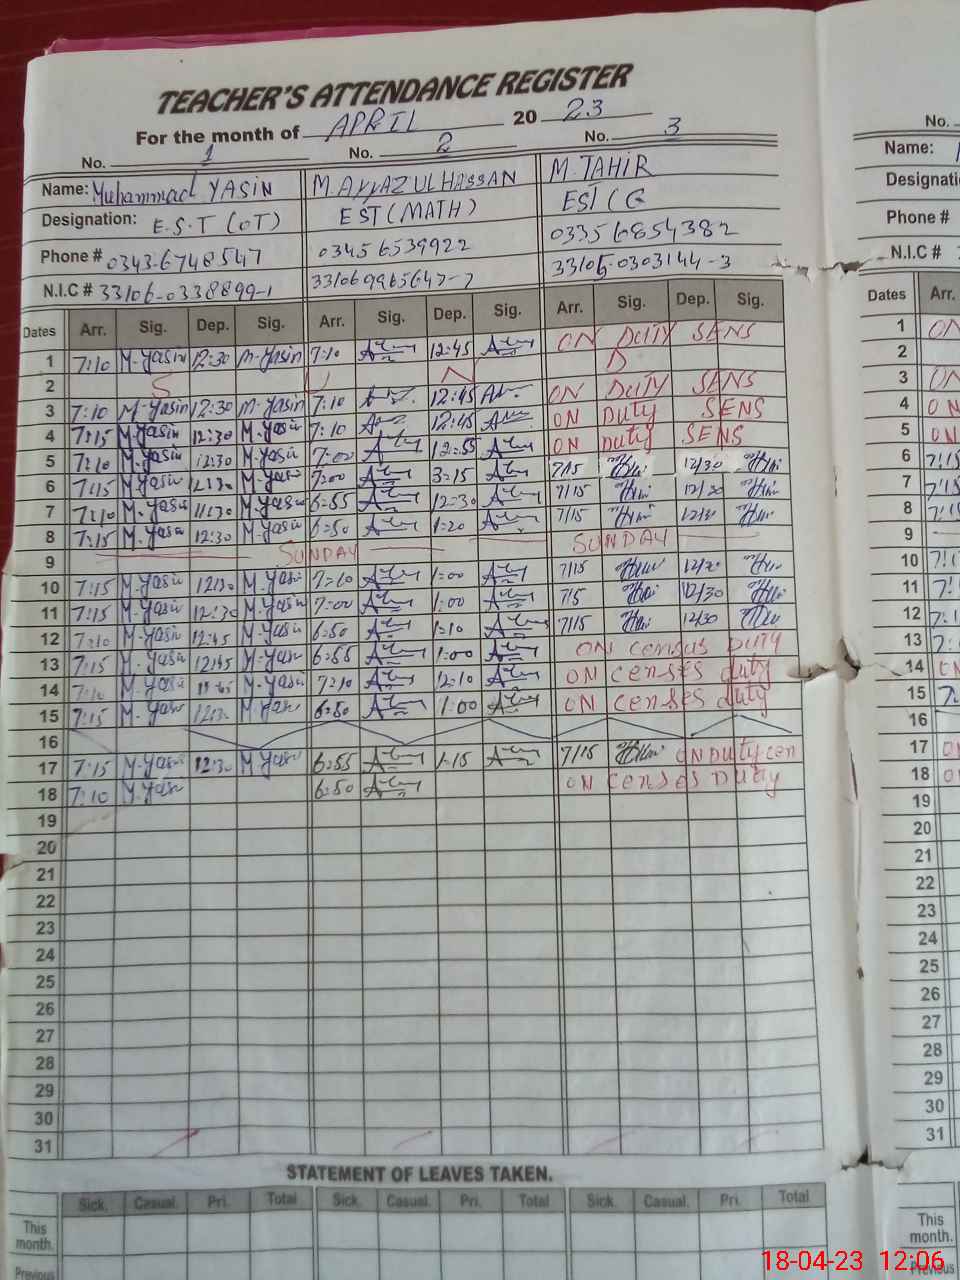 TEACHER'S ATTENDANCE REGISTER
For the month of APRIL 20 23
No. 1 No. 2 No. 3
Name: Muhammad YASIN M. AYYAZ UL HASSAN M. TAHIR
Designation: E.S.T (OT) EST (MATH) EST (G
Phone # 0343-6748547 03456539922 03356854382
N.I.C # 33106-0338899-1 331069965647-7 33105-0303144-3
Dates Arr. Sig. Dep. Sig. Arr. Sig. Dep. Sig. Arr. Sig. Dep. Sig.
1 7:10 M.Yasin 12:30 M.Yasin 7:10 12:45 ON DUTY SENS
2 S U N D
3 7:10 M.Yasin 12:30 M.Yasin 7:10 12:45 ON DUTY SENS
4 7:15 M.Yasin 12:30 M.Yasin 7:10 12:45 ON Duty SENS
5 7:10 M.Yasin 12:30 M.Yasin 7:00 12:55 ON Duty SENS
6 7:15 M.Yasin 12:30 M.Yasin 7:00 3:15 7/15 12/30
7 7:10 M.Yasin 11:30 M.Yasin 6:55 12:30 7/15 12/30
8 7:15 M.Yasin 12:30 M.Yasin 6:50 1:20 7/15 12/30
9 SUNDAY SUNDAY
10 7:15 M.Yasin 12:30 M.Yasin 7:10 1:00 7/15 12/30
11 7:15 M.Yasin 12:30 M.Yasin 7:00 1:00 7/5 12/30
12 7:10 M.Yasin 12:45 M.Yasin 6:50 1:10 7/15 12/30
13 7:15 M.Yasin 12:45 M.Yasin 6:55 1:00 ON census Duty
14 7:10 M.Yasin M.Yasin 7:10 12:10 ON censes duty
15 7:15 M.Yasin 12:30 M.Yasin 6:50 1:00 ON censes duty
16
17 7:15 M.Yasin 12:30 M.Yasin 6:55 1:15 7/15 ON Duty cen
18 7:10 M.Yasin 6:50 ON censes Duty
19
20
21
22
23
24
25
26
27
28
29
30
31
STATEMENT OF LEAVES TAKEN.
Sick. Casual. Pri. Total Sick. Casual. Pri. Total Sick. Casual. Pri. Total
This month.
Previous
No.
Name:
Phone #
N.I.C #
Dates Arr.
1 ON
2
3 ON
4 ON
5 ON
6
7
8
9
10
11
12
13
14 ON
15
16
17
18
19
20
21
22
23
24
25
26
27
28
29
30
31
This month.
Previous
18-04-23 12:06